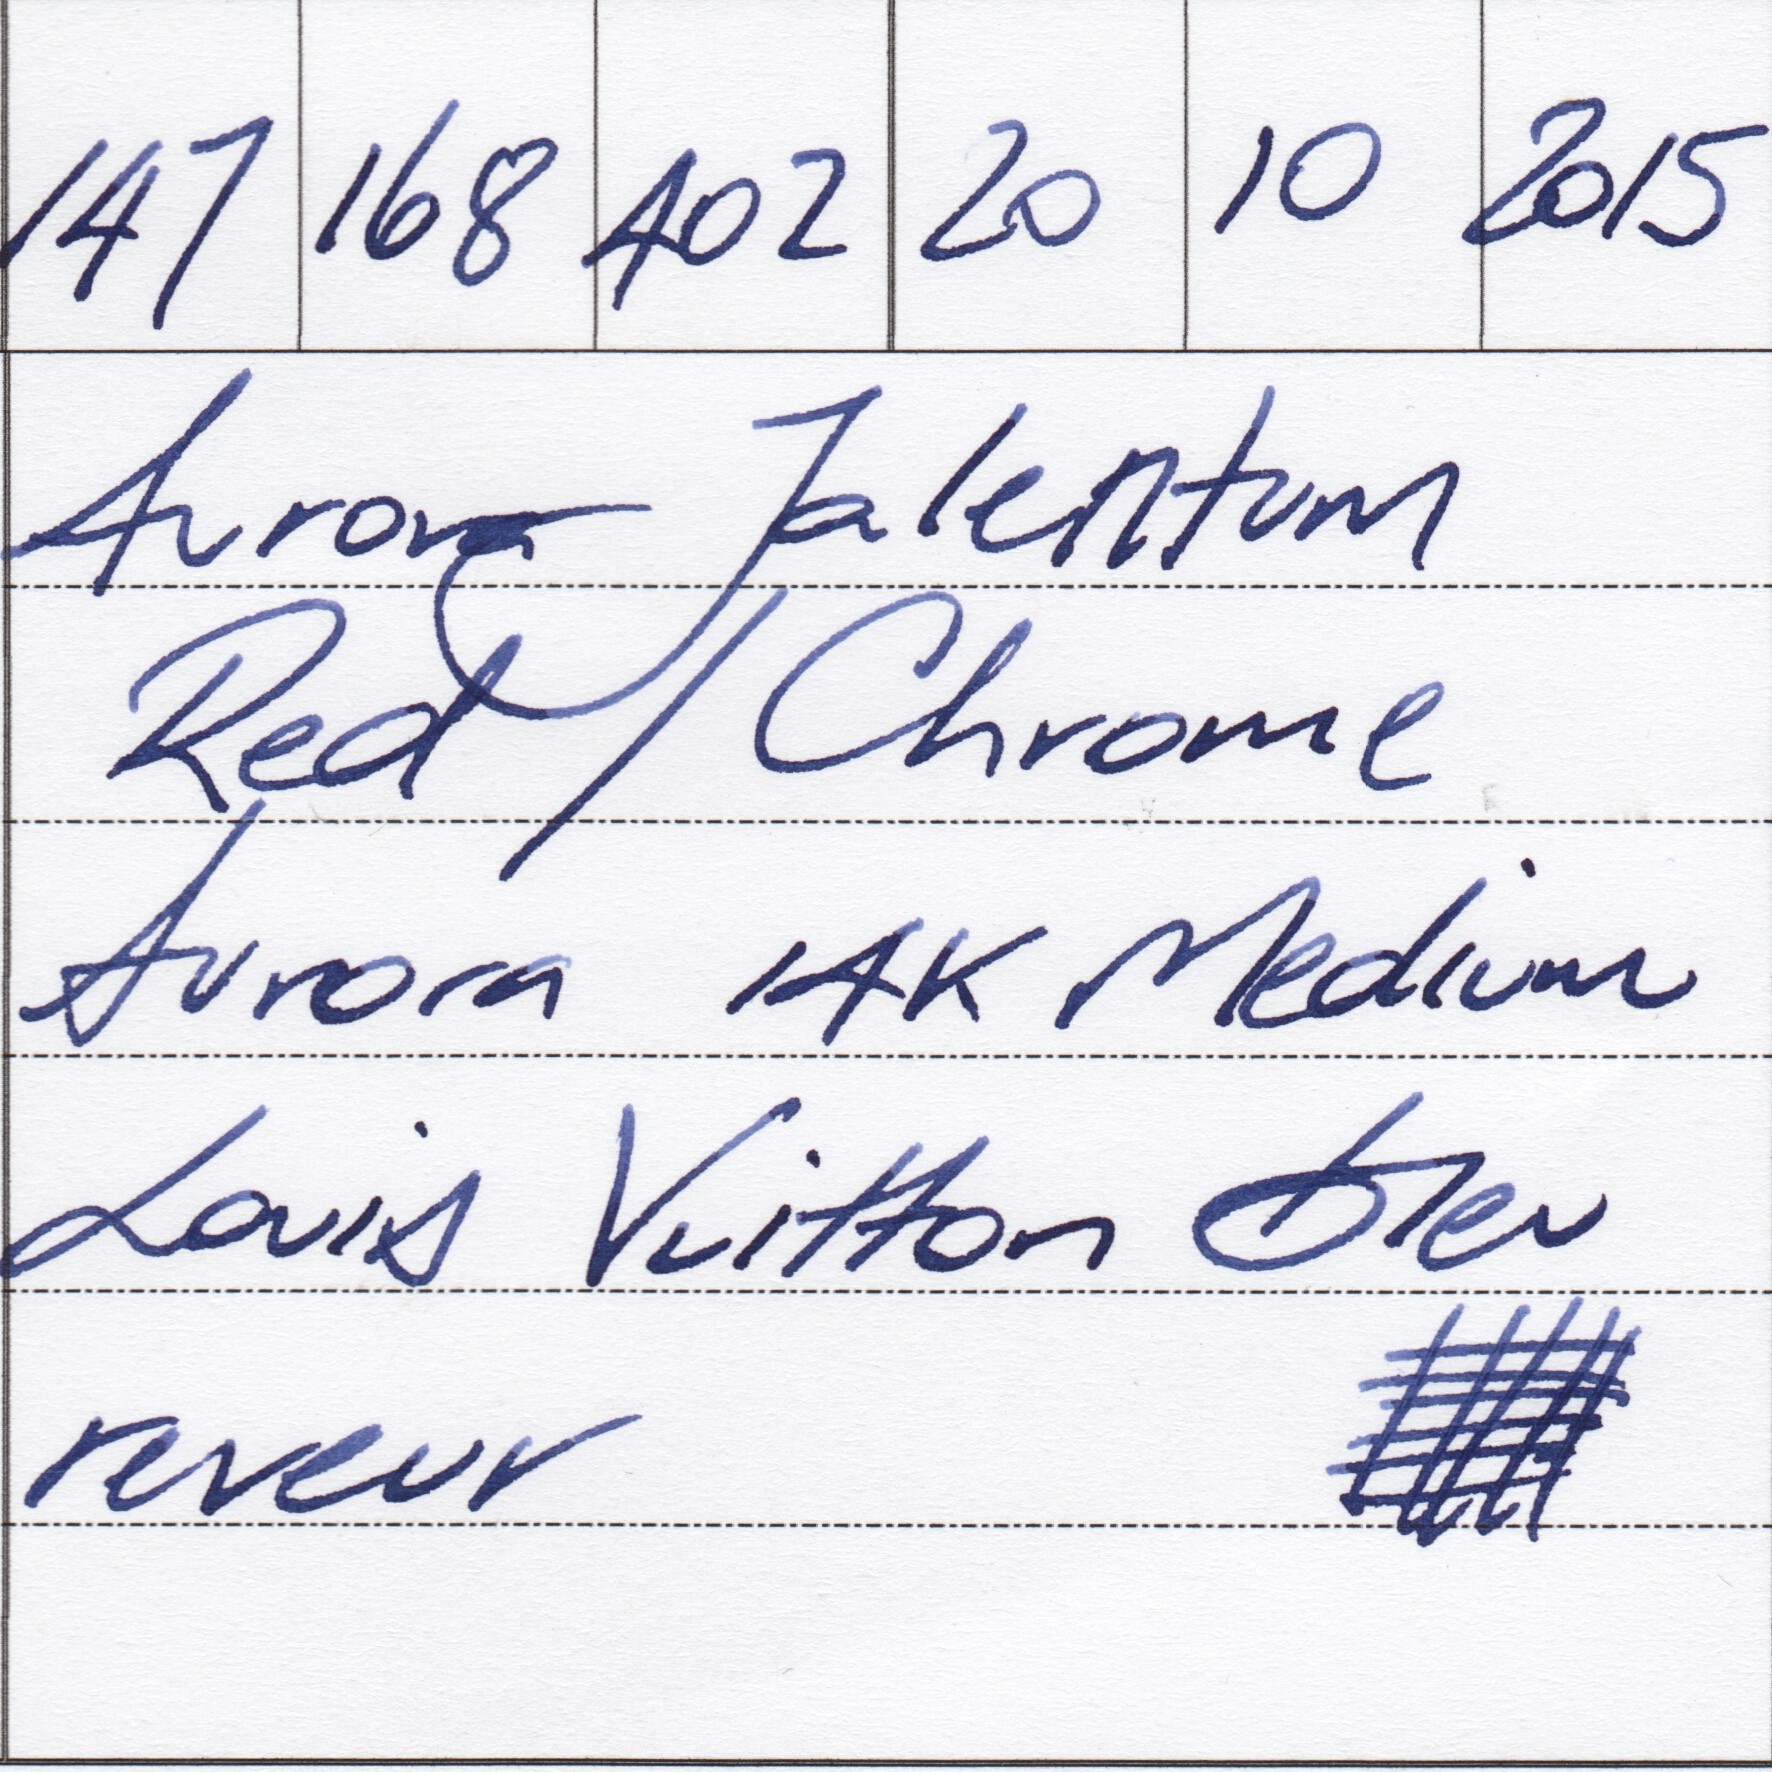 147 168 402 20 10 2015
Aurora Talentum
Red / Chrome
Aurora 14K Medium
Louis Vuitton bleu
reveur